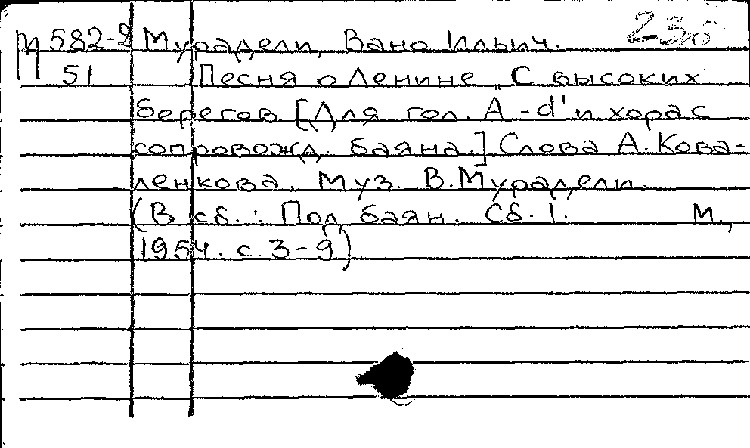 М 582-2 Мурадели, Вано Ильич.
51 Песня о Ленине „С высоких
берегов [Для гол. A-d' и хора с
сопровожд. баяна.] Слова А. Кова-
ленкова. Муз. В. Мурадели.
(В сб.: Под баян. Сб. 1. М.,
1954. с. 3-9)